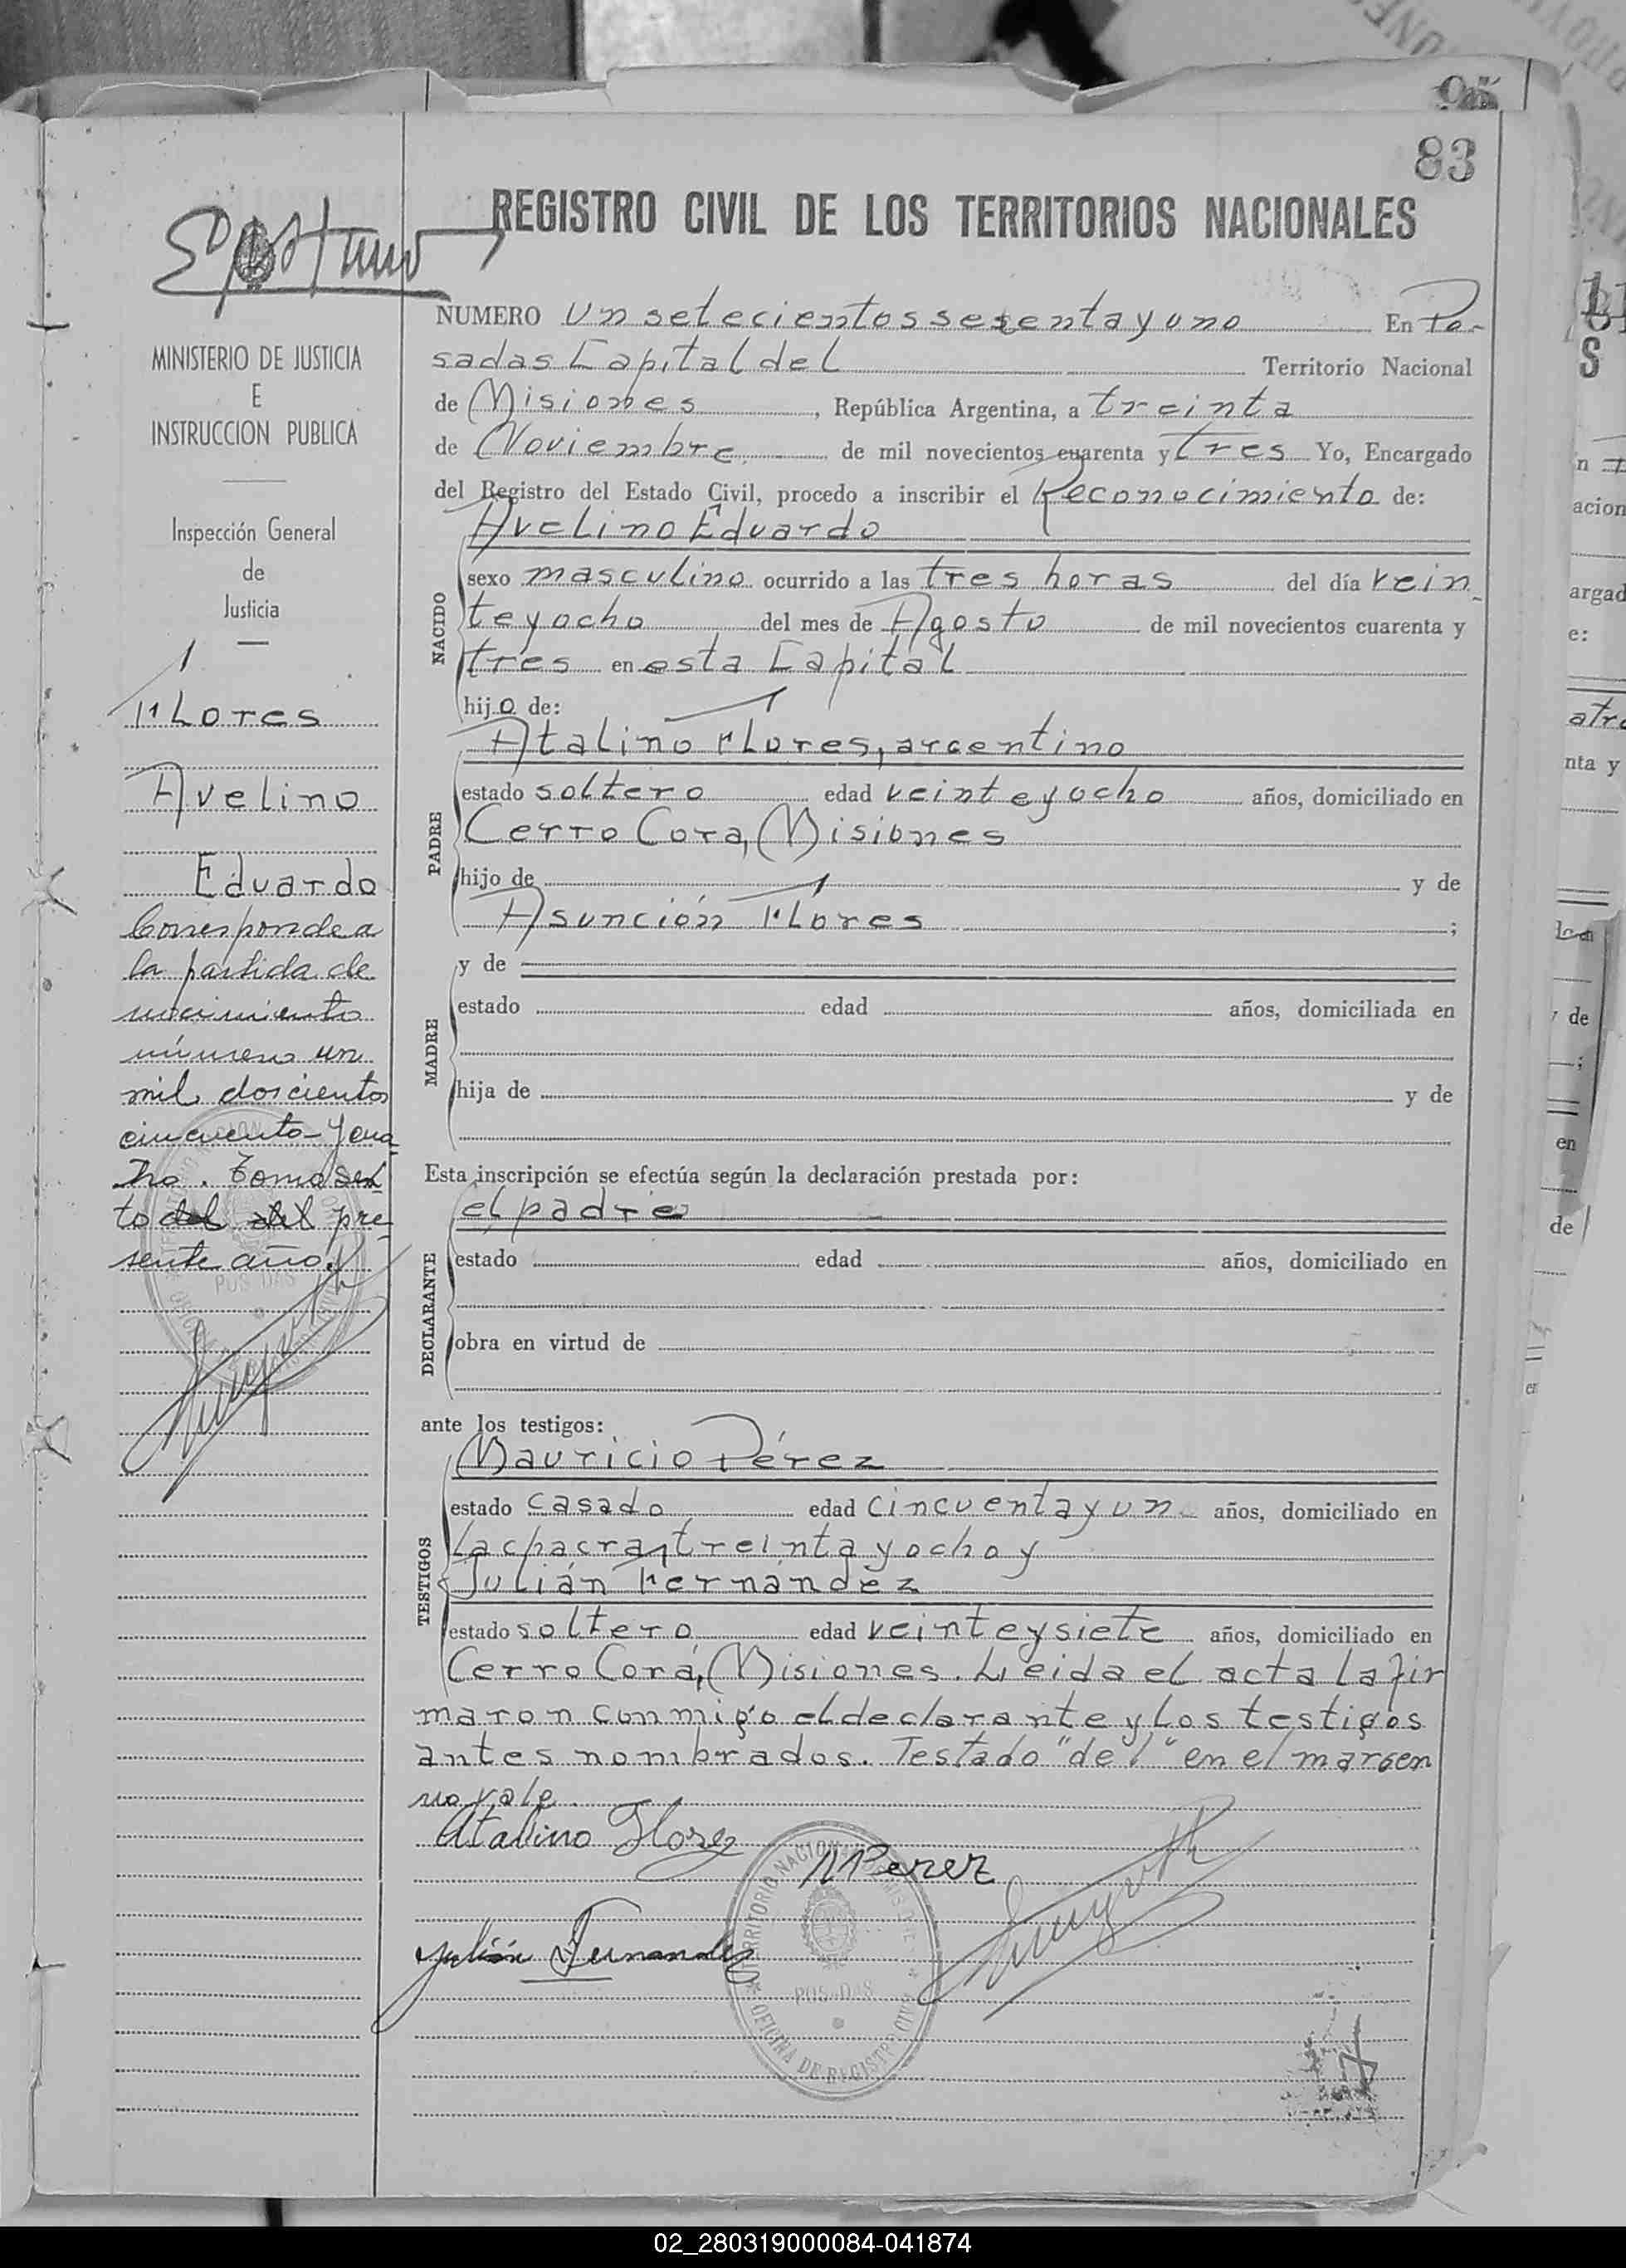 95
83
REGISTRO CIVIL DE LOS TERRITORIOS NACIONALES
NUMERO un setecientos sesenta y uno En Po-
sadas Capital del Territorio Nacional
de Misiones, República Argentina, a treinta
de Noviembre de mil novecientos cuarenta y tres Yo, Encargado
del Registro del Estado Civil, procedo a inscribir el Reconocimiento de:
Avelino Eduardo
NACIDO
sexo masculino ocurrido a las tres horas del día vein
te y ocho del mes de Agosto de mil novecientos cuarenta y
tres en esta Capital
hijo de:
Atalino Flores, argentino
PADRE
estado soltero edad veinte y ocho años, domiciliado en
Cerro Cora, Misiones
hijo de y de
Asunción Flores ;
MADRE
y de
estado edad años, domiciliada en
hija de y de
Esta inscripción se efectúa según la declaración prestada por:
el padre
DECLARANTE
estado edad años, domiciliado en
obra en virtud de
ante los testigos:
Mauricio Pérez
TESTIGOS
estado casado edad cincuenta y un años, domiciliado en
la chacra treinta y ocho y
Julián Fernández
estado soltero edad veinte y siete años, domiciliado en
Cerro Corá, Misiones. Leida el acta la fir
maron conmigo el declarante y los testigos
antes nombrados. Testado "del" en el margen
no vale.
Atalino Flores
M Perez
Julián Fernandez
TERRITORIO NACIONAL DE MISIONES
POSADAS
OFICINA DE REGISTRO CIVIL
MINISTERIO DE JUSTICIA
E
INSTRUCCION PUBLICA
Inspección General
de
Justicia
Flores
Avelino
Eduardo
Corresponde a
la partida de
nacimiento
número un
mil doscientos
cincuenta y cua
tro. Tomo sex
to del del pre
sente año.
POSADAS
02_280319000084-041874